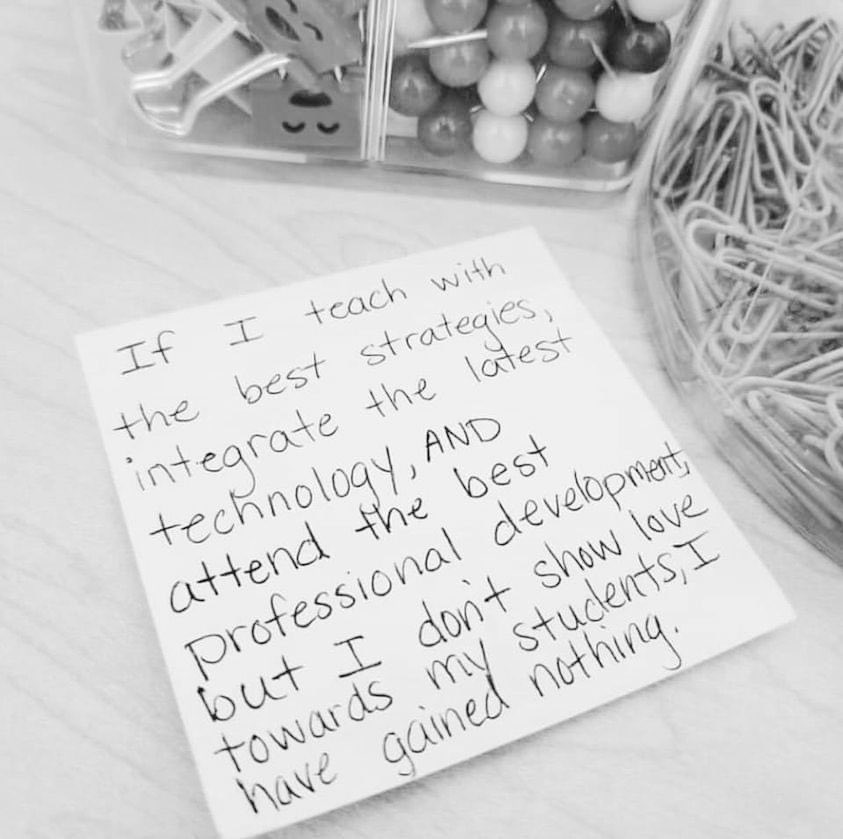 If I teach with
the best strategies,
integrate the latest
technology, AND
attend the best
professional development,
but I don't show love
towards my students, I
have gained nothing.